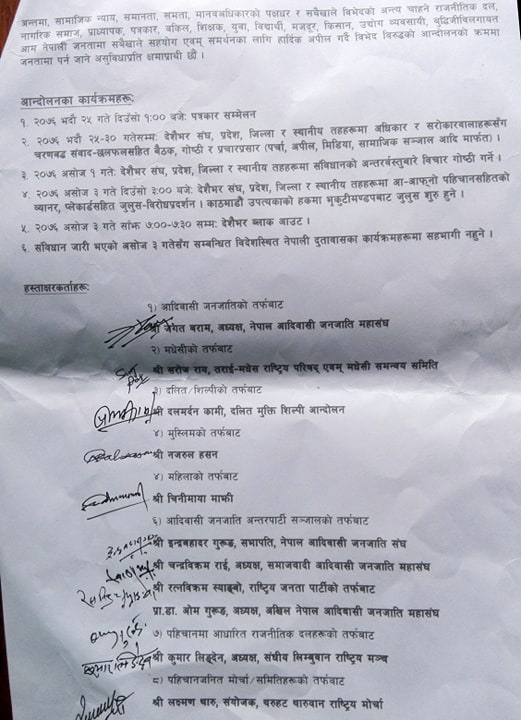 अन्तमा, सामाजिक न्याय, समानता, समता, मानवअधिकारको पक्षधर र सबैखाले विभेदको अन्त्य चाहने राजनीतिक दल,
नागरिक समाज, प्राध्यापक, पत्रकार, वकिल, शिक्षक, युवा, विद्यार्थी, मजदुर, किसान, उद्योग व्यवसायी, बुद्धिजीविलगायत
आम नेपाली जनतामा सबैखाले सहयोग एवम् समर्थनका लागि हार्दिक अपील गर्दै विभेद विरुद्धको आन्दोलनको क्रममा
जनतामा पर्न जाने असुविधाप्रति क्षमाप्रार्थी छौं ।
आन्दोलनका कार्यक्रमहरू:
१. २०७६ भदौ २५ गते दिउँसो १:०० बजे: पत्रकार सम्मेलन
२. २०७६ भदौ २५-३० गतेसम्म: देशैभर संघ, प्रदेश, जिल्ला र स्थानीय तहहरूमा अधिकार र सरोकारवालाहरूसँग
चरणबद्ध संवाद-छलफलसहित बैठक, गोष्ठी र प्रचारप्रसार (पर्चा, अपील, मिडिया, सामाजिक सञ्जाल आदि मार्फत) ।
३. २०७६ असोज १ गते: देशैभर संघ, प्रदेश, जिल्ला र स्थानीय तहहरूमा संविधानको अन्तरर्वस्तुबारे विचार गोष्ठी गर्ने ।
४. २०७६ असोज ३ गते दिउँसो ३:०० बजे: देशैभर संघ, प्रदेश, जिल्ला र स्थानीय तहहरूमा आ-आफ्नो पहिचानसहितको
ब्यानर, प्लेकार्डसहित जुलुस-विरोधप्रदर्शन । काठमाडौं उपत्यकाको हकमा भृकुटीमण्डपबाट जुलुस शुरु हुने ।
५. २०७६ असोज ३ गते साँझ ७:००-७:३० सम्म: देशैभर ब्लाक आउट ।
६. संविधान जारी भएको असोज ३ गतेसँग सम्बन्धित विदेशस्थित नेपाली दुतावासका कार्यक्रमहरूमा सहभागी नहुने ।
हस्ताक्षरकर्ताहरू:
१) आदिवासी जनजातिको तर्फबाट
श्री जगत बराम, अध्यक्ष, नेपाल आदिवासी जनजाति महासंघ
२) मधेसीको तर्फबाट
श्री सरोज राय, तराई-मधेस राष्ट्रिय परिषद् एवम् मधेसी समन्वय समिति
३) दलित/शिल्पीको तर्फबाट
श्री दलमर्दन कामी, दलित मुक्ति शिल्पी आन्दोलन
४) मुस्लिमको तर्फबाट
श्री नजरुल हसन
४) महिलाको तर्फबाट
श्री चिनीमाया माझी
६) आदिवासी जनजाति अन्तरपार्टी सञ्जालको तर्फबाट
श्री इन्द्रबहादर गुरुङ, सभापति, नेपाल आदिवासी जनजाति संघ
श्री चन्द्रविक्रम राई, अध्यक्ष, समाजवादी आदिवासी जनजाति महासंघ
श्री रत्नविक्रम स्याङ्बो, राष्ट्रिय जनता पार्टीको तर्फबाट
प्रा.डा. ओम गुरुङ, अध्यक्ष, अखिल नेपाल आदिवासी जनजाति महासंघ
७) पहिचानमा आधारित राजनीतिक दलहरूको तर्फबाट
श्री कुमार लिङ्देन, अध्यक्ष, संघीय लिम्बुवान राष्ट्रिय मञ्च
८) पहिचानजनित मोर्चा/समितिहरूको तर्फबाट
श्री लक्ष्मण थारु, संयोजक, थरुहट थारुवान राष्ट्रिय मोर्चा